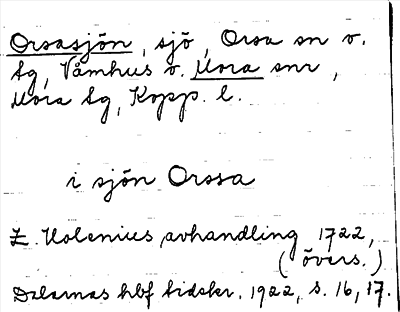 Orsasjön, sjö, Orsa sn o.
tg, Våmhus o. Mora snr,
Mora tg, Kopp. l.
i sjön Orssa
E. Holenius, avhandling 1722,
(övers.)
Dalarnas hbf tidskr. 1922, s. 16, 17.